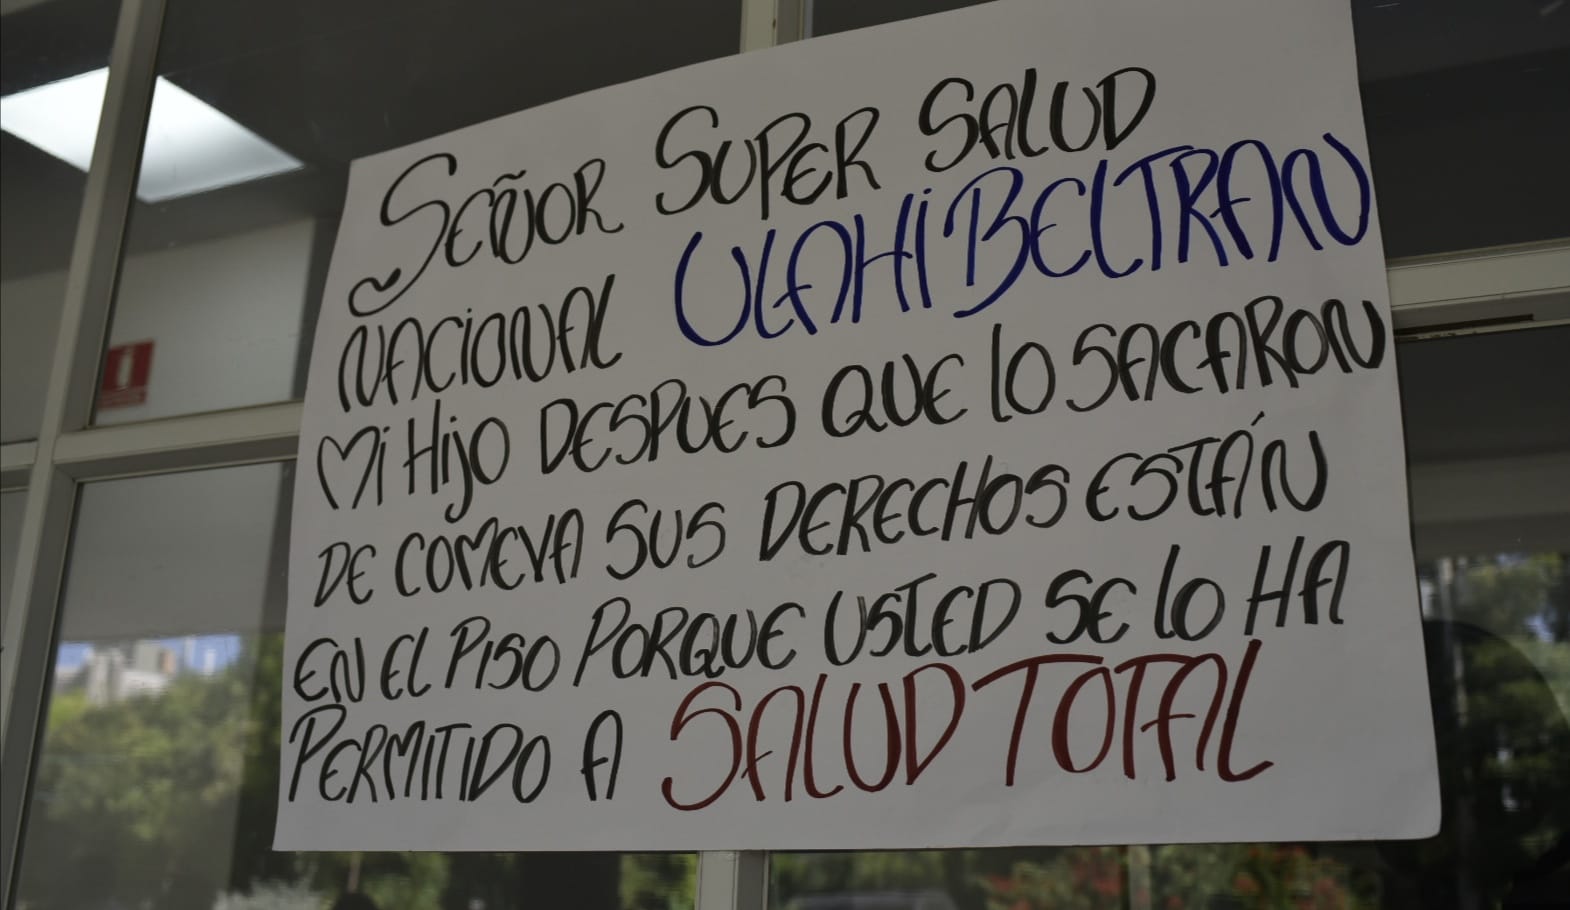 SEÑOR SUPER SALUD
NACIONAL ULAHI BELTRAN
MI HIJO DESPUES QUE LO SACARON
DE COMEVA SUS DERECHOS ESTÁN
EN EL PISO PORQUE USTED SE LO HA
PERMITIDO A SALUD TOTAL